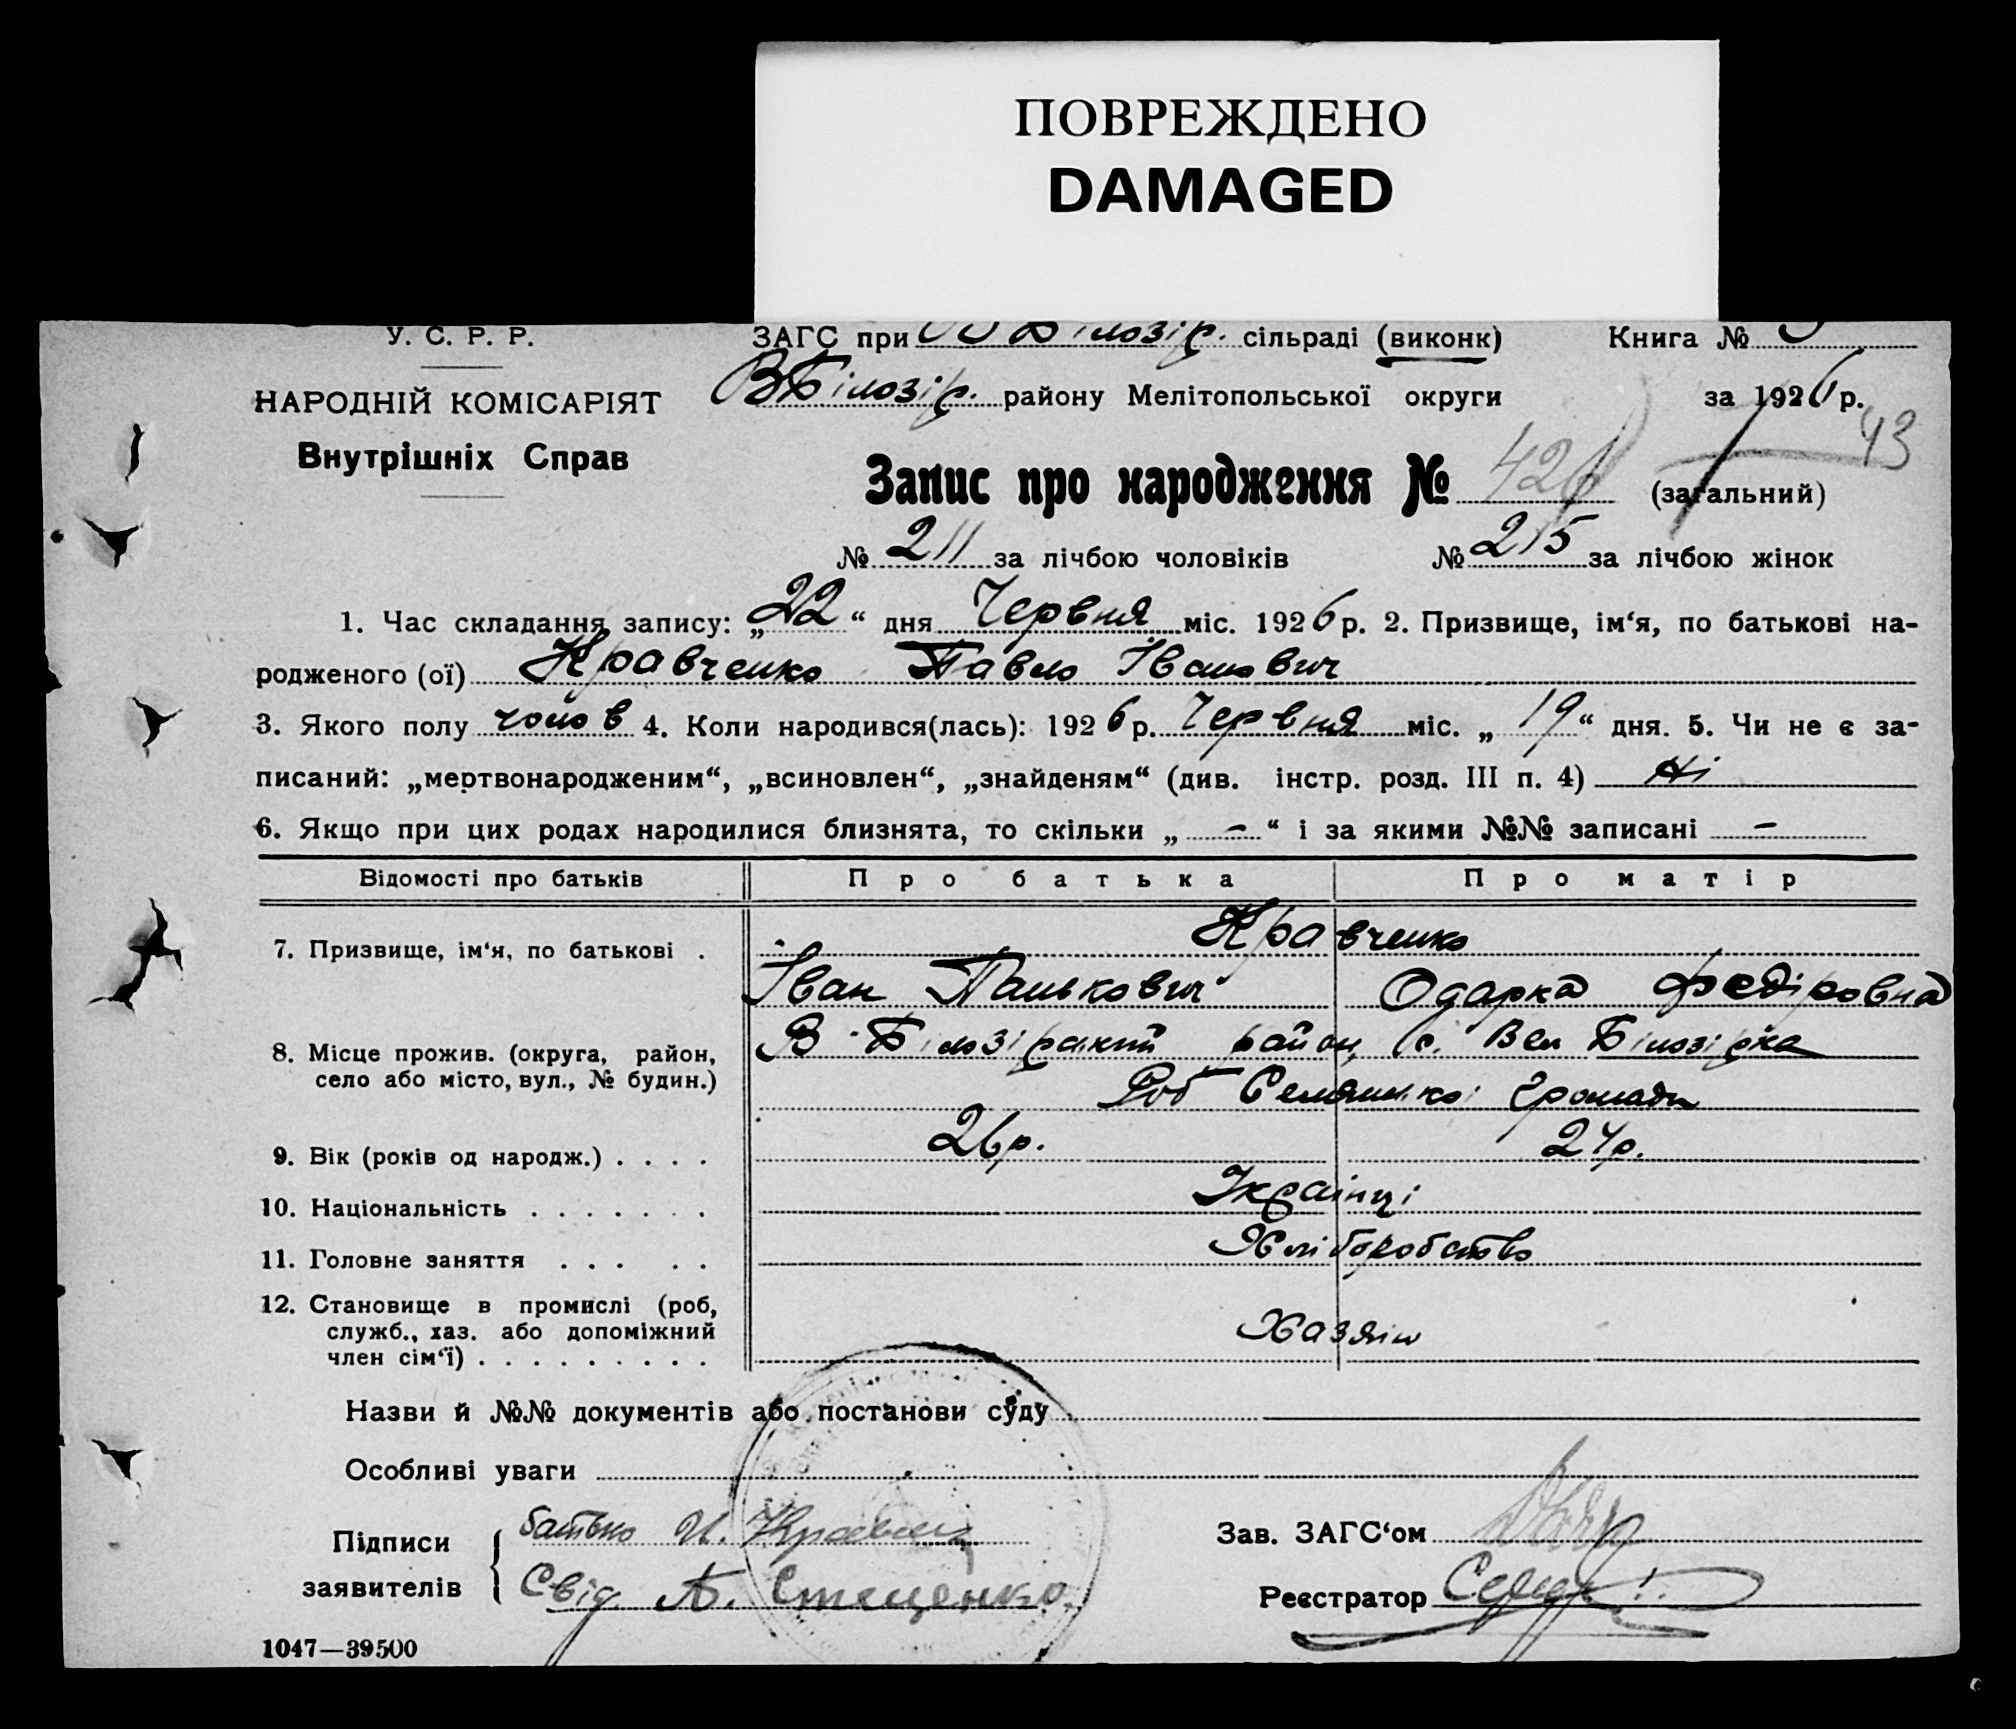 ПОВРЕЖДЕНО
DAMAGED
У. С. Р. Р.
ЗАГС при В Білозір. сільраді (виконк) Книга №
НАРОДНІЙ КОМІСАРІЯТ
В Білозір. району Мелітопольської округи за 1926 р.
43
Внутрішніх Справ
Запис про народження № 426 (загальний)
№ 211 за лічбою чоловіків № 215 за лічбою жінок
1. Час складання запису: „22“ дня Червня міс. 1926 р. 2. Призвище, ім‘я, по батькові на-
родженого (ої) Кравченко Павло Іванович
3. Якого полу чолов 4. Коли народився(лась): 1926 р. Червня міс. „19“ дня. 5. Чи не є за-
писаний: „мертвонародженим“, „всиновлен“, „знайденям“ (див. інстр. розд. III п. 4) Ні
6. Якщо при цих родах народилися близнята, то скільки „ – “ і за якими №№ записані –
Відомості про батьків Про батька Про матір
Кравченко
7. Призвище, ім‘я, по батькові .
Іван Панькович Одарка Федіровна
8. Місце прожив. (округа, район, В. Білозірський район, с. Вел Білозірка
село або місто, вул., № будин.)
Громади
9. Вік (років од народж.) . . . . 26 р. 24 р.
10. Національність . . . . . . . Українці
11. Головне заняття . . . . . Хліборобство
12. Становище в промислі (роб,
служб., хаз. або допоміжний Хазяін
член сім‘ї) . . . . . . . . .
Назви й №№ документів або постанови суду
Особливі уваги
Підписи батько И. Кравченко Зав. ЗАГС‘ом
заявителів Свід. А. Стеценко Реєстратор
1047—39500